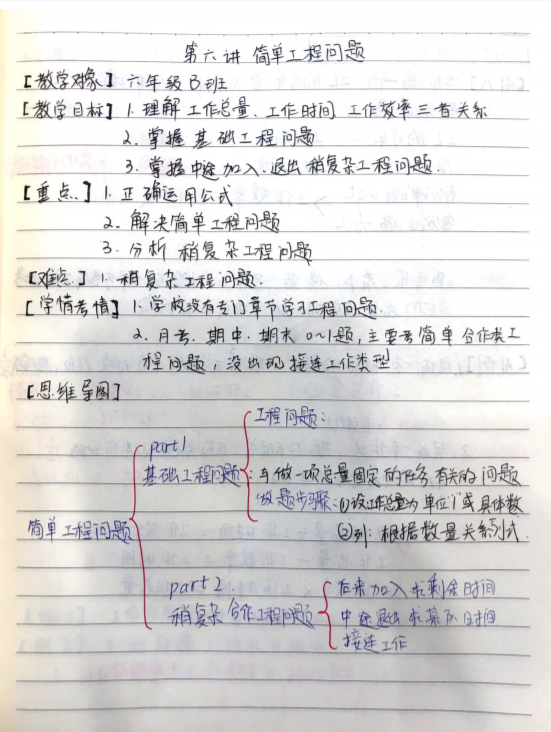 第六讲 简单工程问题
【教学对象】六年级B班
【教学目标】1.理解工作总量、工作时间、工作效率三者关系
2.掌握基础工程问题
3.掌握中途加入、退出稍复杂工程问题.
【重点】1.正确运用公式
2.解决简单工程问题
3.分析稍复杂工程问题
【难点】1.稍复杂工程问题.
【学情考情】1.学校没有专门章节学习工程问题.
2.月考、期中、期末0~1题,主要考简单合作类工
程问题,没出现接连工作类型
【思维导图】
简单工程问题
part1
基础工程问题
工程问题:
与做一项总量固定的任务有关的问题
做题步骤:①设工作总量为单位"1"或具体数
②列:根据数量关系列式.
part2.
稍复杂合作工程问题
后来加入求剩余时间
中途退出求某队时间
接连工作